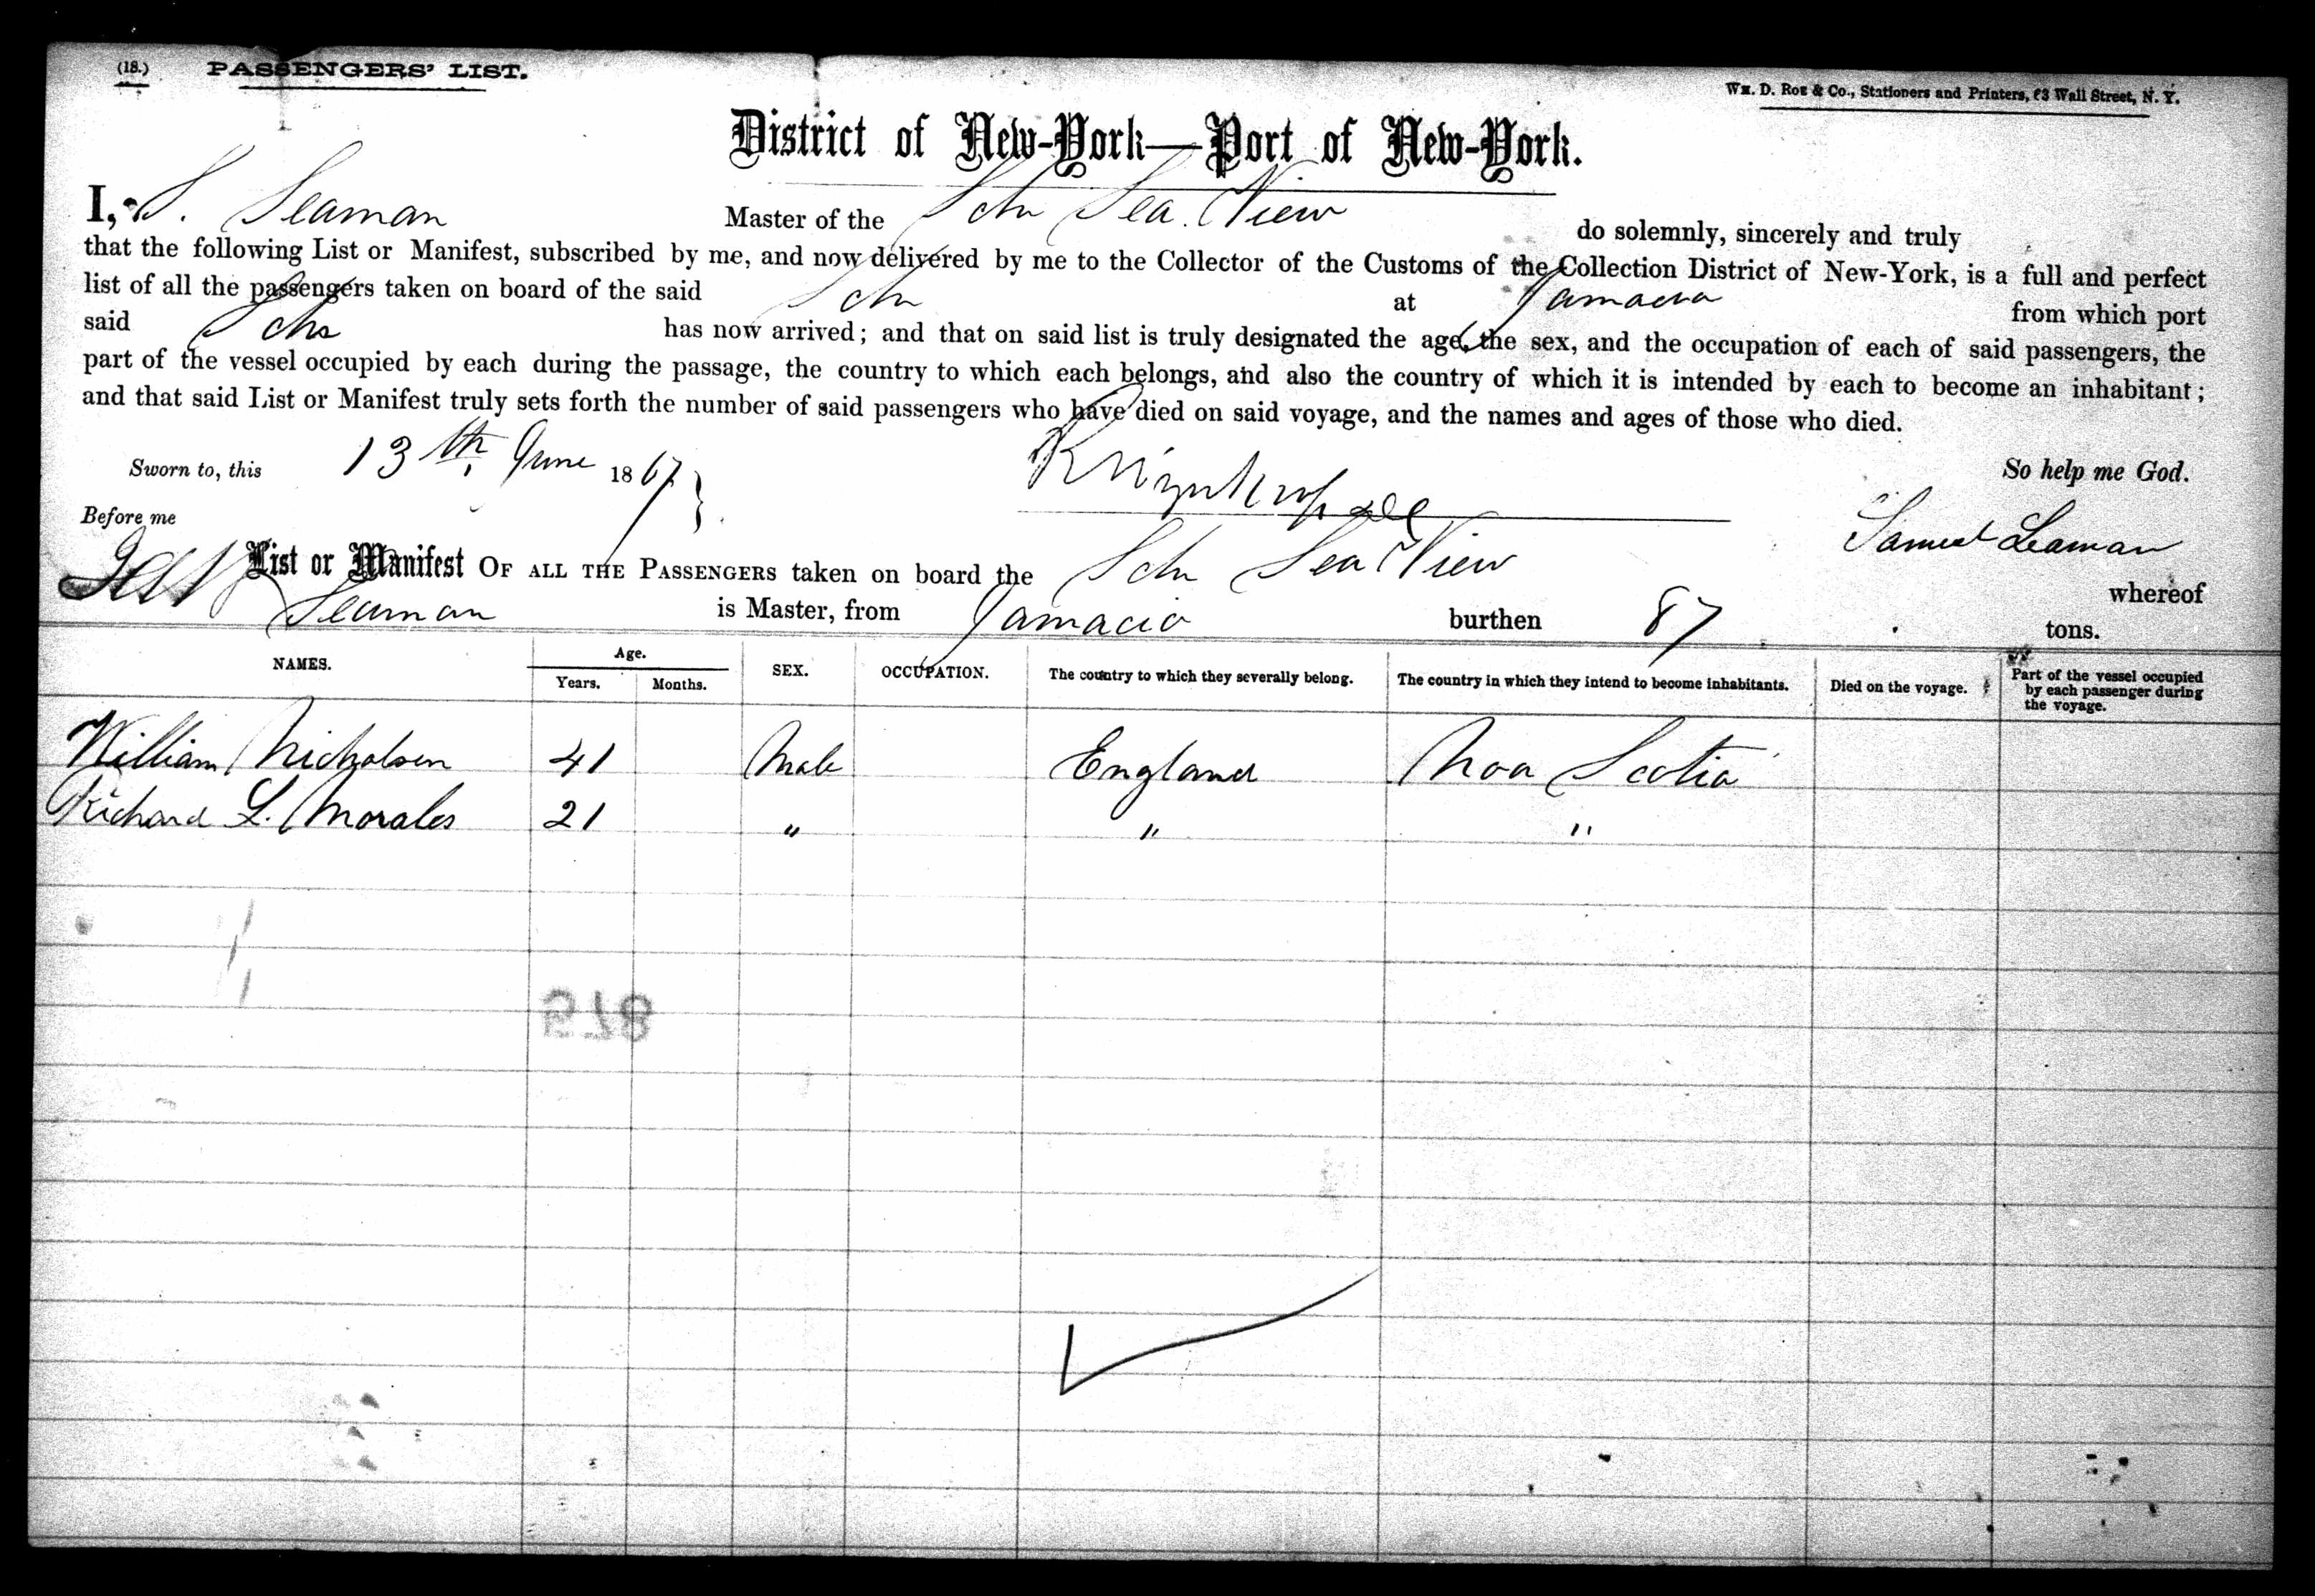 (18.) PASSENGERS' LIST.
Wm. D. Roe & Co., Stationers and Printers, 63 Wall Street, N. Y.
District of New-York—Port of New-York.
I, S. Seaman Master of the Schr Sea View do solemnly, sincerely and truly
that the following List or Manifest, subscribed by me, and now delivered by me to the Collector of the Customs of the Collection District of New-York, is a full and perfect
list of all the passengers taken on board of the said Schr at Jamacia from which port
said Schr has now arrived; and that on said list is truly designated the age, the sex, and the occupation of each of said passengers, the
part of the vessel occupied by each during the passage, the country to which each belongs, and also the country of which it is intended by each to become an inhabitant;
and that said List or Manifest truly sets forth the number of said passengers who have died on said voyage, and the names and ages of those who died.
Sworn to, this 13th June 1867 So help me God.
Before me Samuel Seaman
List or Manifest OF ALL THE PASSENGERS taken on board the Schr Sea View whereof
Seaman is Master, from Jamacia burthen 87 tons.
NAMES. Age. Years. Months. SEX. OCCUPATION. The country to which they severally belong. The country in which they intend to become inhabitants. Died on the voyage. Part of the vessel occupied by each passenger during the voyage.
William Nicholson 41 Male England Nova Scotia
Richard L. Morales 21 " " "
218